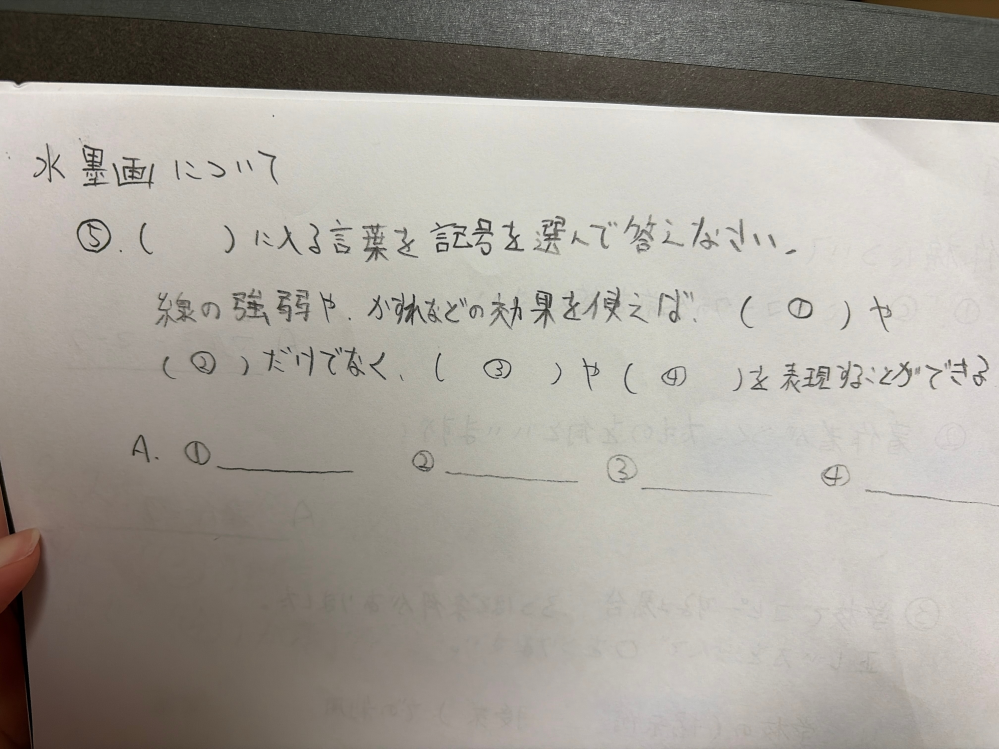 水墨画について
⑤.(　　)に入る言葉を記号を選んで答えなさい。
線の強弱や、かすれなどの効果を使えば、(　①　)や
(　②　)だけでなく、(　③　)や(　④　)を表現することができる
A. ①　②　③　④